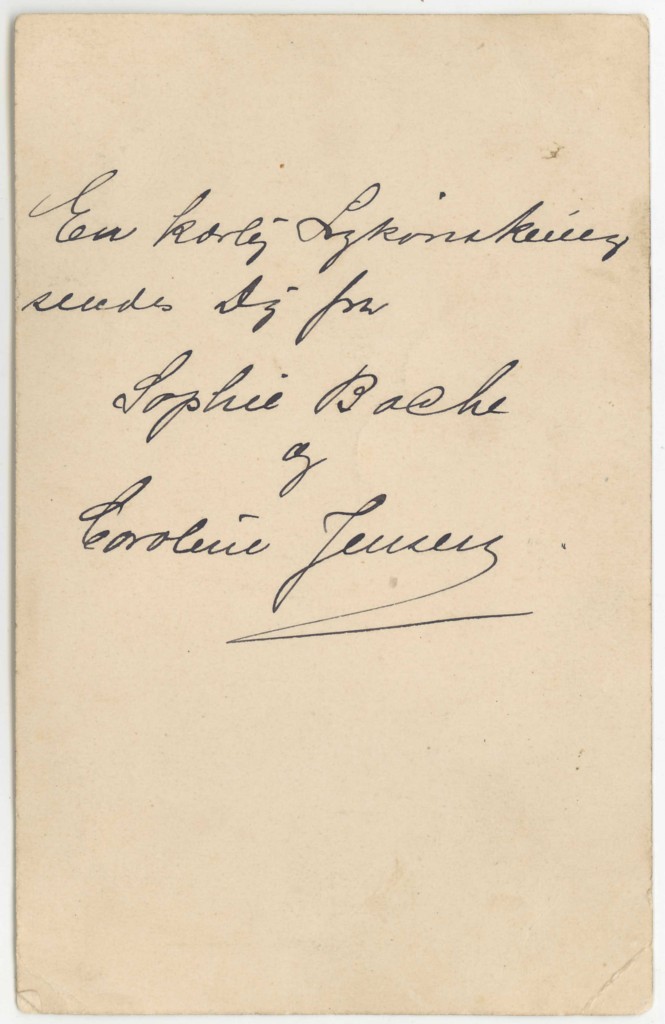 En kærlig Lykønskning
sendes Dig fra
Sophie Bache
og
Caroline Jensen